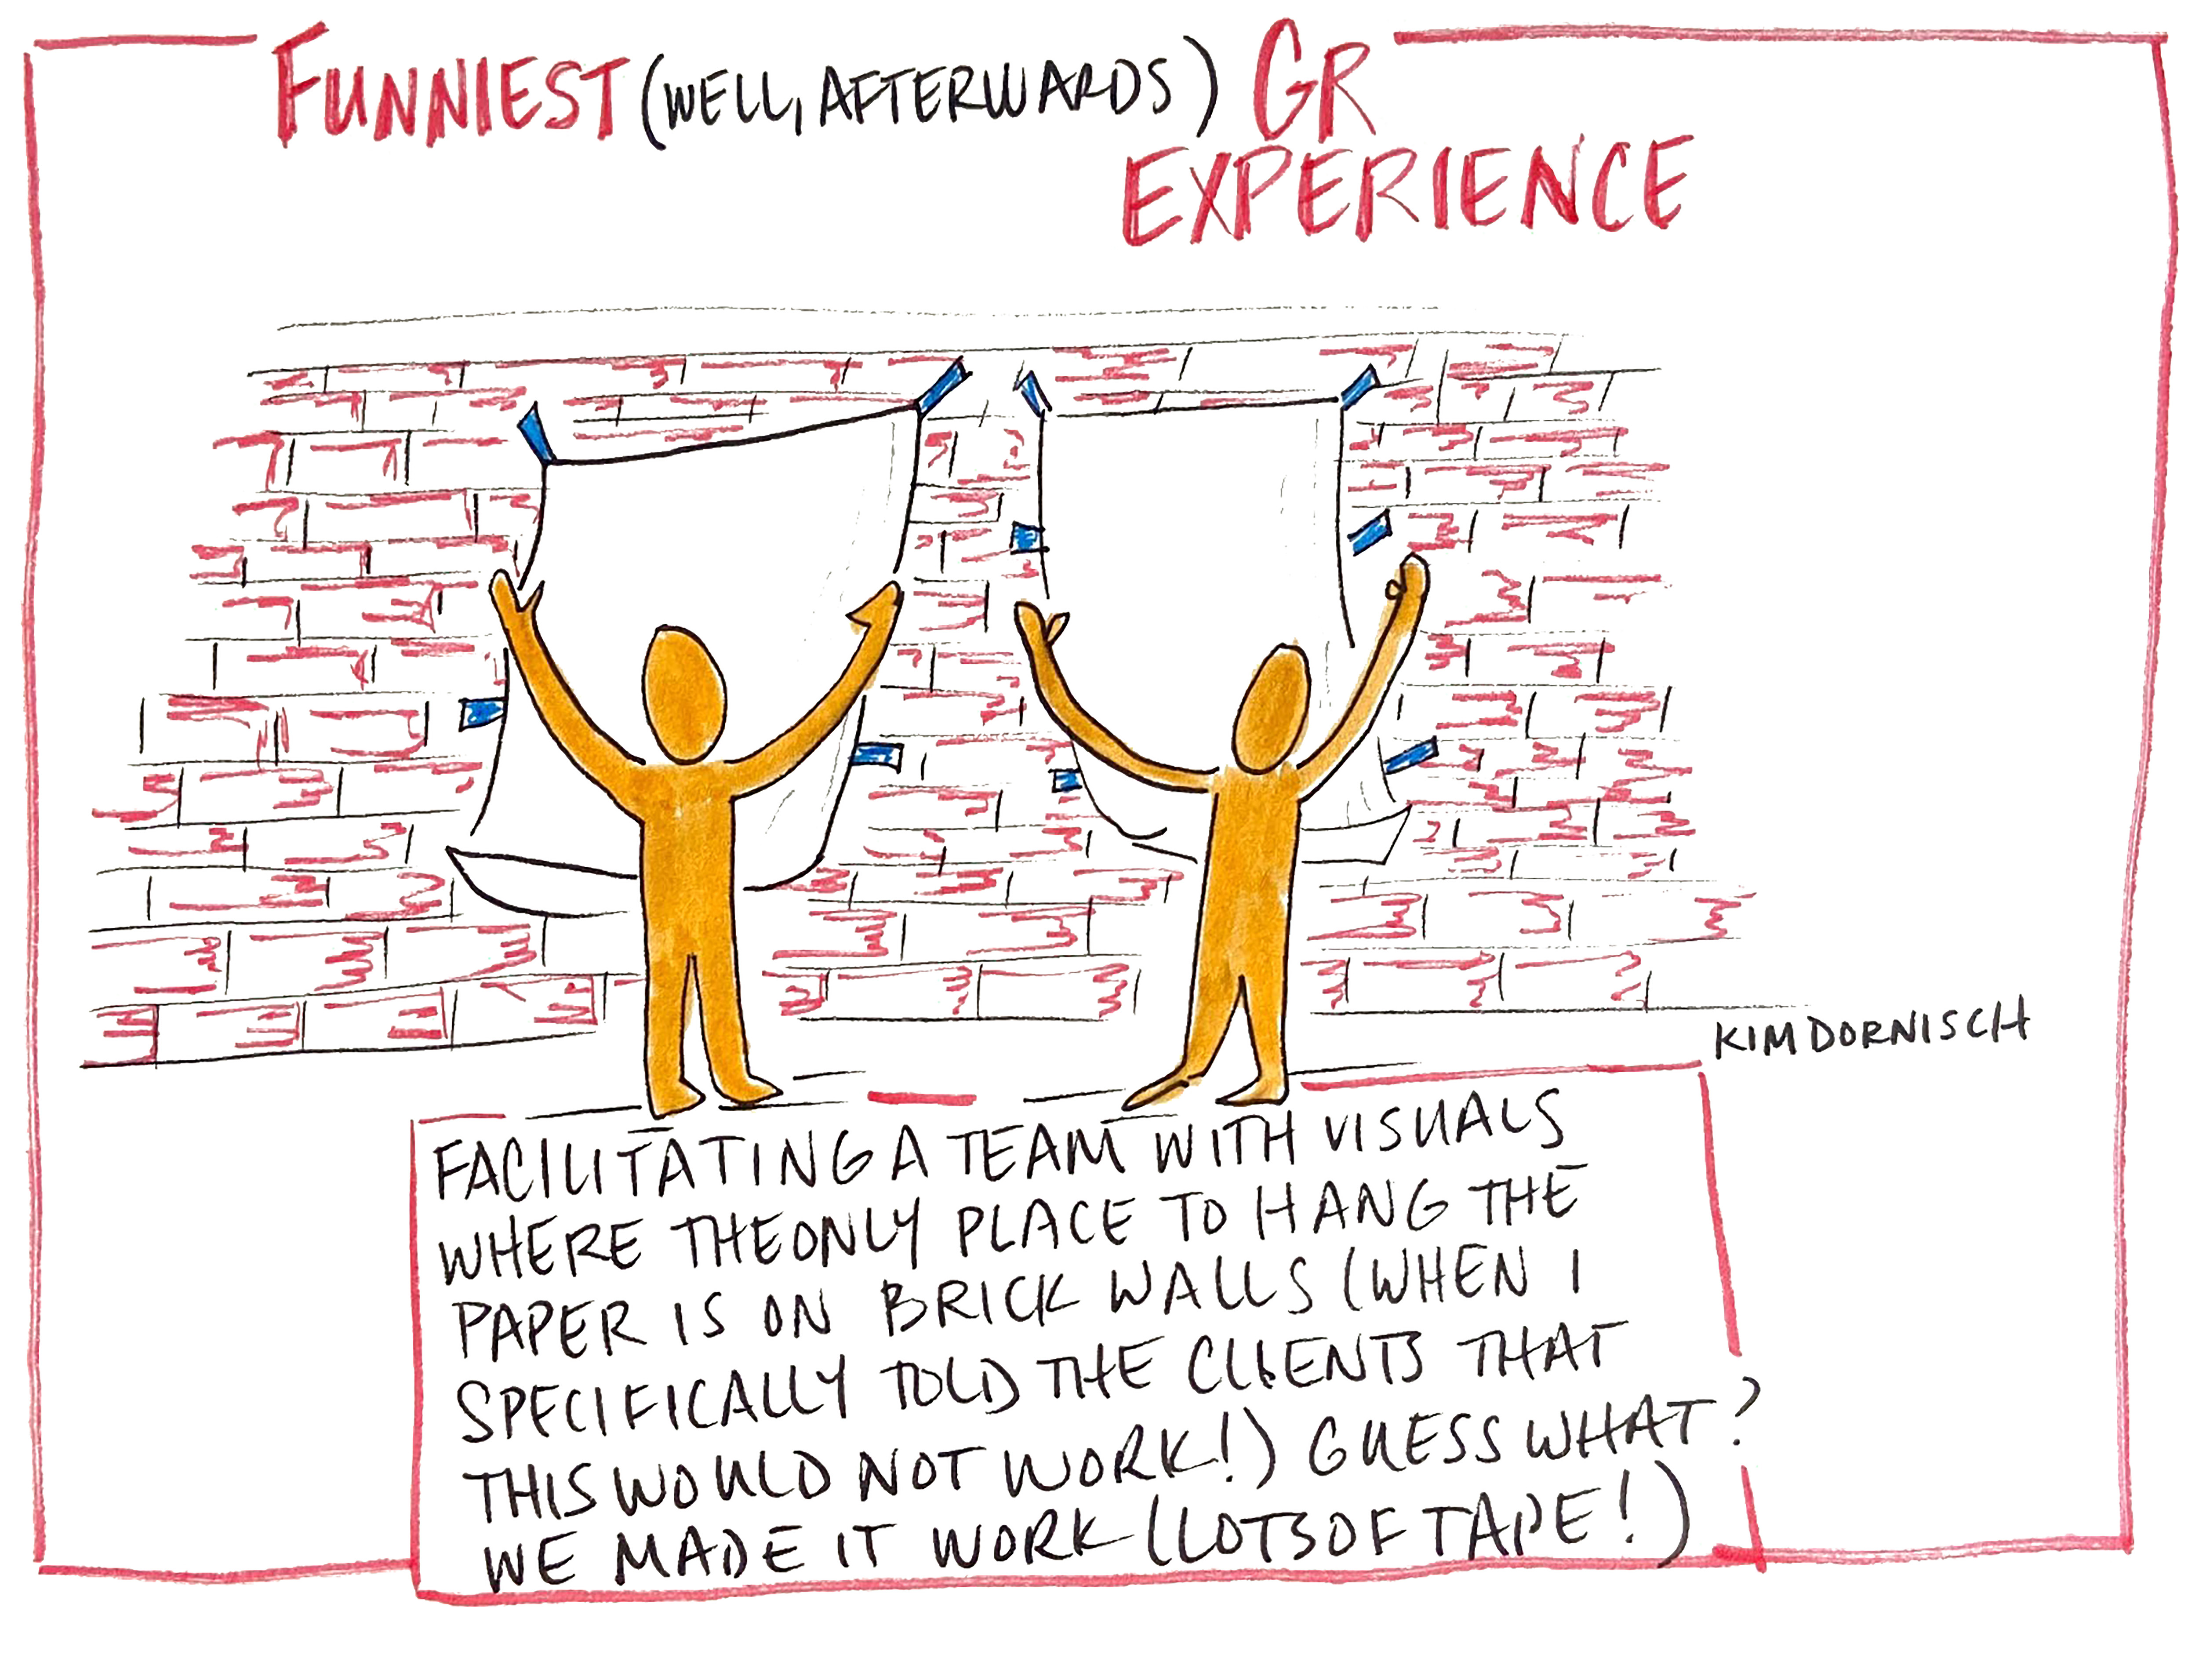 FUNNIEST (WELL, AFTERWARDS) GR
EXPERIENCE
KIM DORNISCH
FACILITATING A TEAM WITH VISUALS
WHERE THE ONLY PLACE TO HANG THE
PAPER IS ON BRICK WALLS (WHEN I
SPECIFICALLY TOLD THE CLIENTS THAT
THIS WOULD NOT WORK!) GUESS WHAT?
WE MADE IT WORK (LOTS OF TAPE!)